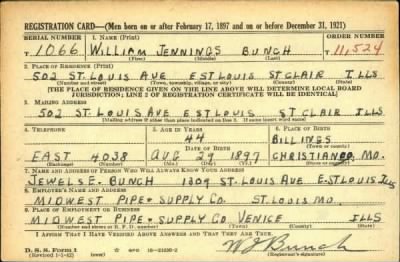 REGISTRATION CARD—(Men born on or after February 17, 1897 and on or before December 31, 1921)
SERIAL NUMBER 1. NAME (Print) ORDER NUMBER
T 1066 WILLIAM JENNINGS BUNCH T 11,524
(First) (Middle) (Last)
2. PLACE OF RESIDENCE (Print)
502 ST. LOUIS AVE E ST LOUIS ST CLAIR ILLS
(Number and street) (Town, township, village, or city) (County) (State)
[THE PLACE OF RESIDENCE GIVEN ON THE LINE ABOVE WILL DETERMINE LOCAL BOARD
JURISDICTION; LINE 2 OF REGISTRATION CERTIFICATE WILL BE IDENTICAL]
3. MAILING ADDRESS
502 ST. LOUIS AVE E ST LOUIS ST CLAIR ILLS
[Mailing address if other than place indicated on line 2. If same insert word same]
4. TELEPHONE 5. AGE IN YEARS 6. PLACE OF BIRTH
44 BILLINGS
DATE OF BIRTH (Town or county)
EAST 4038 AUG 29 1897 CHRISTIAN CO MO.
(Exchange) (Number) (Mo.) (Day) (Yr.) (State or country)
7. NAME AND ADDRESS OF PERSON WHO WILL ALWAYS KNOW YOUR ADDRESS
JEWELS E. BUNCH 1309 ST. LOUIS AVE E. ST LOUIS ILLS
8. EMPLOYER'S NAME AND ADDRESS
MIDWEST PIPE & SUPPLY CO. ST. LOUIS MO.
9. PLACE OF EMPLOYMENT OR BUSINESS
MIDWEST PIPE & SUPPLY CO VENICE ILLS
(Number and street or R. F. D. number) (Town) (County) (State)
I AFFIRM THAT I HAVE VERIFIED ABOVE ANSWERS AND THAT THEY ARE TRUE.
D. S. S. Form 1
(Revised 1-1-42) (over) 16—21630-2 W J Bunch